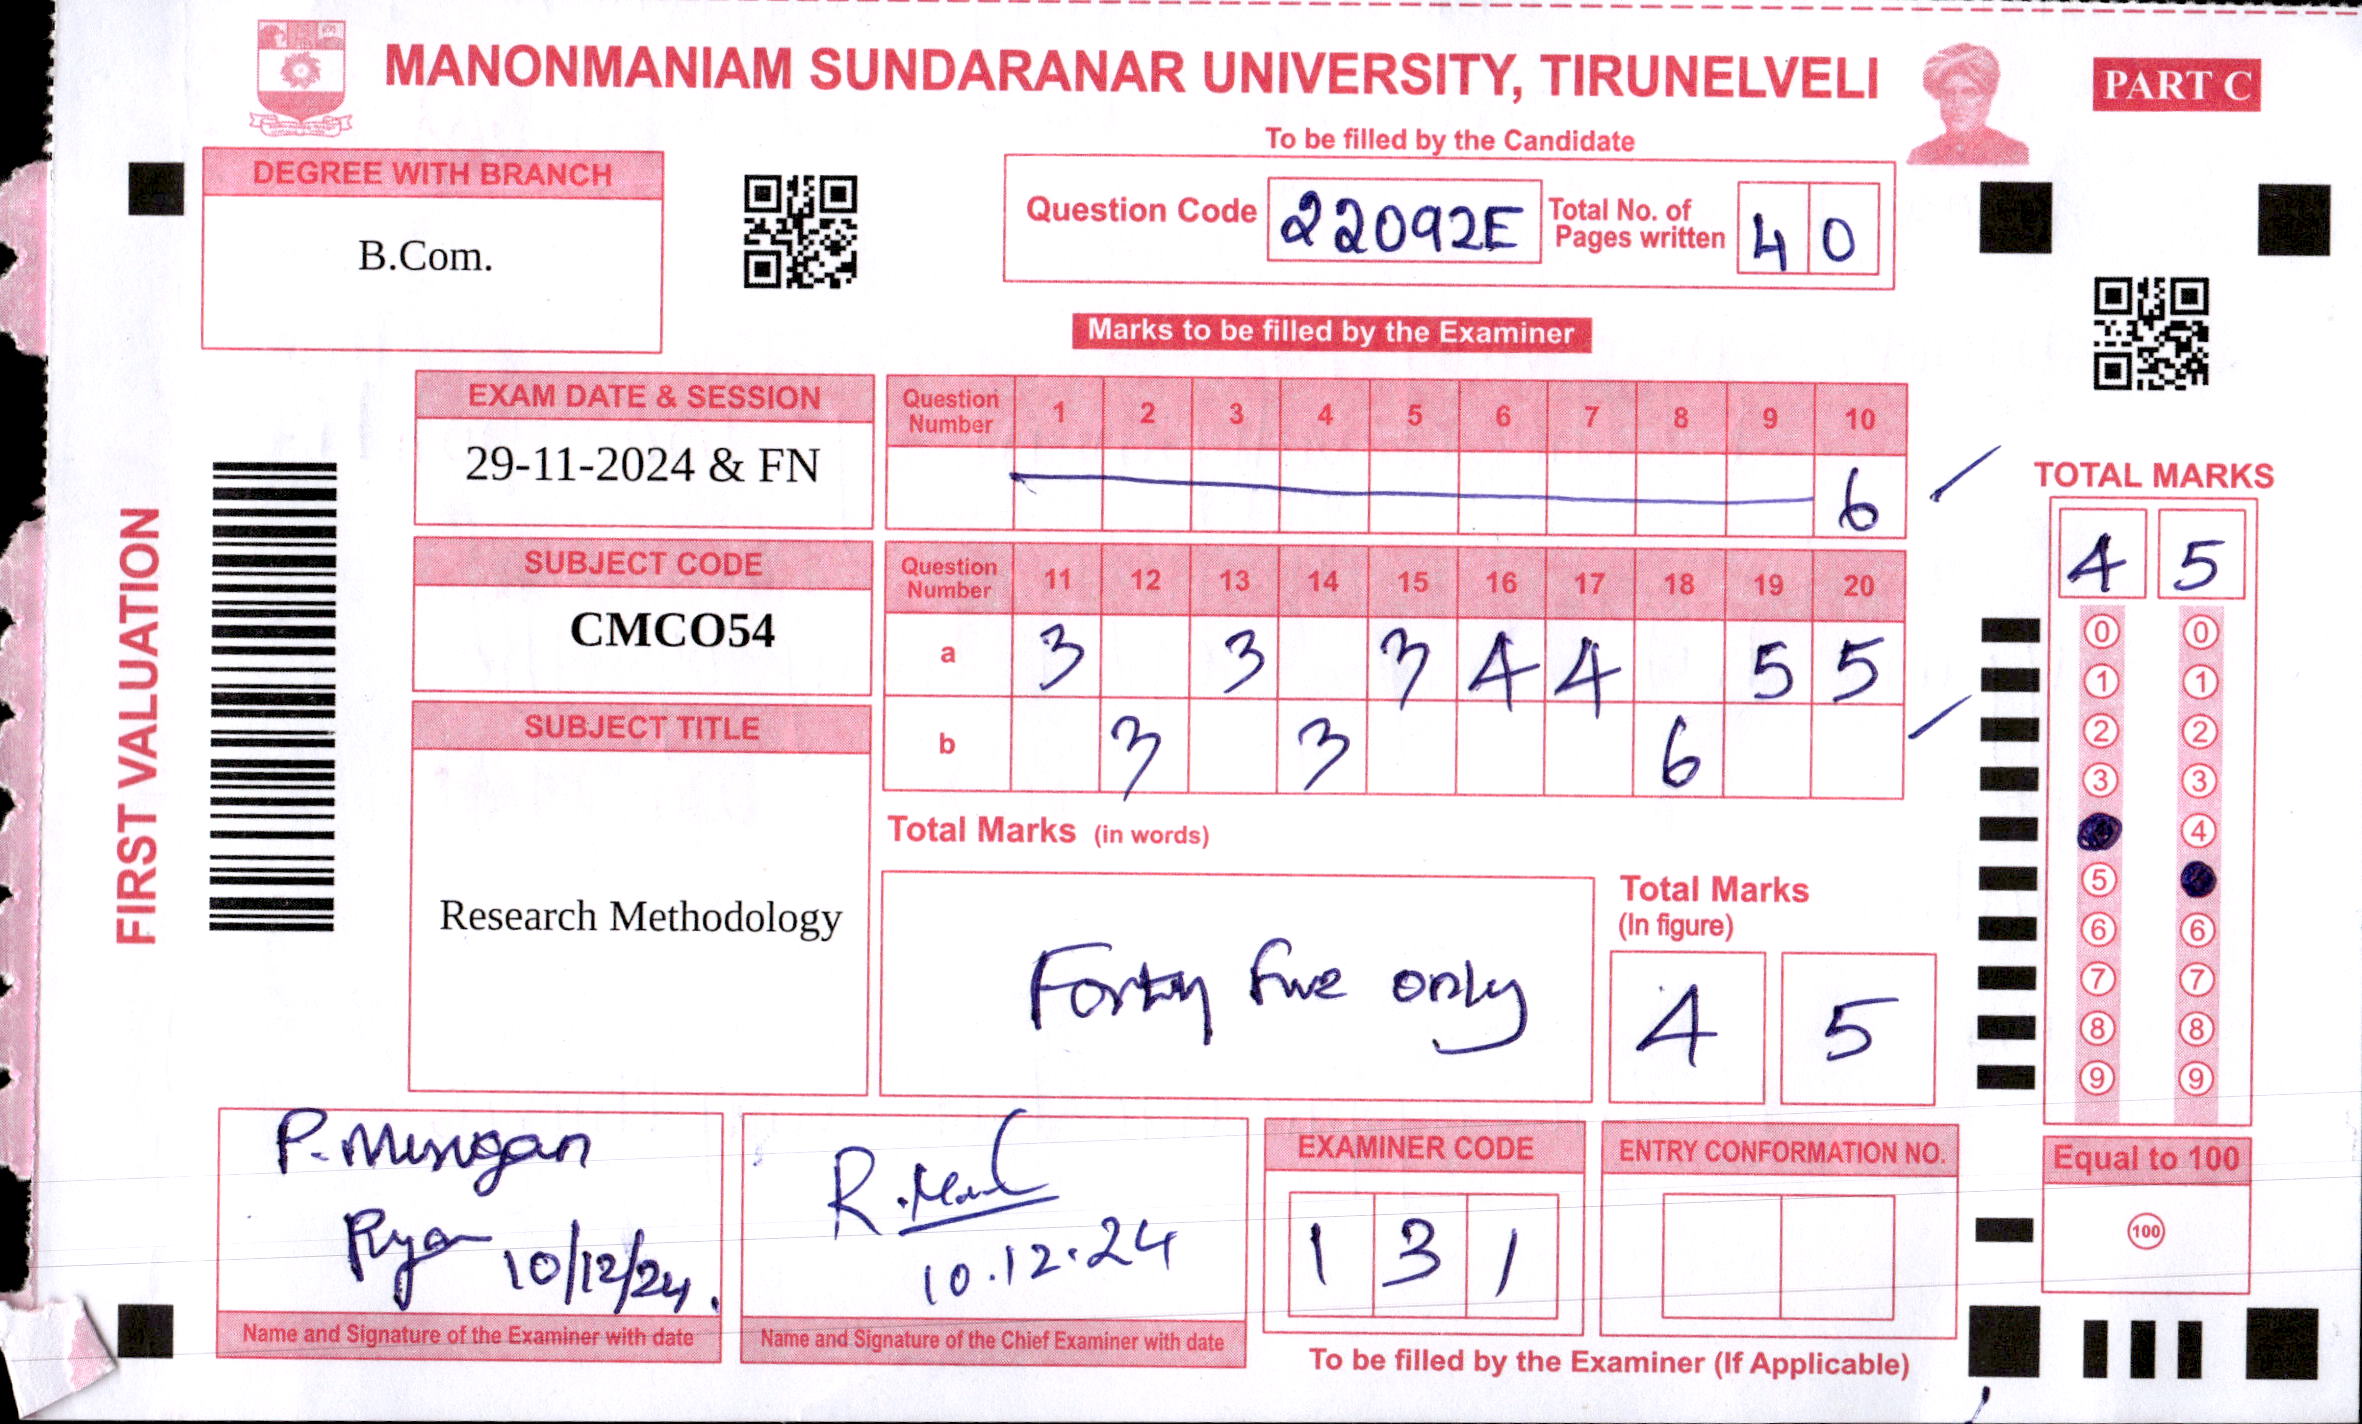 MANONMANIAM SUNDARANAR UNIVERSITY, TIRUNELVELI
PART C
To be filled by the Candidate
DEGREE WITH BRANCH
B.Com.
Question Code 22092E Total No. of Pages written 4 0
Marks to be filled by the Examiner
EXAM DATE & SESSION
29-11-2024 & FN
Question Number 1 2 3 4 5 6 7 8 9 10
6
SUBJECT CODE
CMCO54
Question Number 11 12 13 14 15 16 17 18 19 20
a 3 3 3 4 4 5 5
b 3 3 6
SUBJECT TITLE
Research Methodology
Total Marks (in words)
Forty five only
Total Marks (In figure)
4 5
FIRST VALUATION
TOTAL MARKS
4 5
0 0
1 1
2 2
3 3
4
5
6 6
7 7
8 8
9 9
Equal to 100
100
P. Murugan
10/12/24.
Name and Signature of the Examiner with date
R.
10.12.24
Name and Signature of the Chief Examiner with date
EXAMINER CODE
1 3 1
ENTRY CONFORMATION NO.
To be filled by the Examiner (If Applicable)